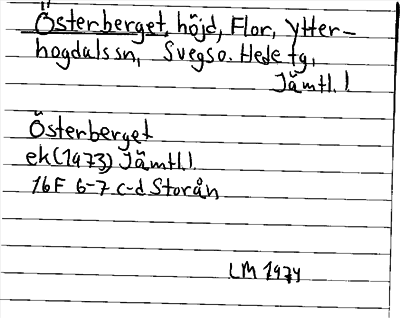 Österberget, höjd, Flor, Ytter-
hogdals sn, Svegs o. Hede tg,
Jämtl. l
Österberget
ek (1973) Jämtl. l.
16F 6-7 c-d Storån
LM 1974